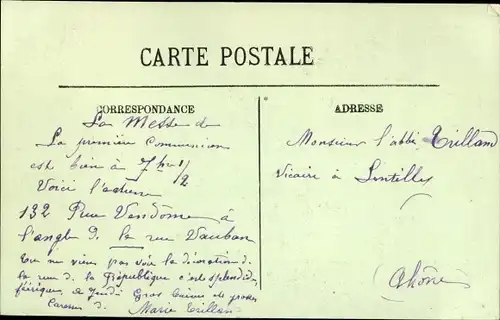 CARTE POSTALE
CORRESPONDANCE
La Messe de
La première Communion
est bien à 7h 1/2
Voici l'adresse
132 Rue Vendôme à
l'angle d. la rue Vauban
tu ne viens pas voir la décoration d.
la rue d. la République c'est splendide
féérique, à Jeudi Gros baisers de
Marie Trilland
ADRESSE
Monsieur l'abbé Trilland
Vicaire à Lentilly
(Rhône)